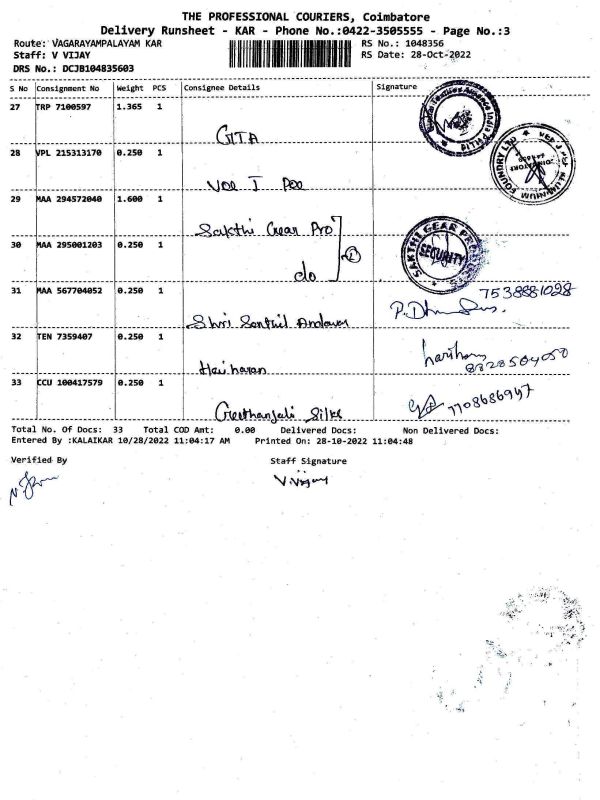 THE PROFESSIONAL COURIERS, Coimbatore
Delivery Runsheet - KAR - Phone No.:0422-3505555 - Page No.:3
Route: VAGARAYAMPALAYAM KAR RS No.: 1048356
Staff: V VIJAY RS Date: 28-Oct-2022
DRS No.: DCJB104835603
S No Consignment No Weight PCS Consignee Details Signature
27 TRP 7100597 1.365 1
GITA
28 VPL 215313170 0.250 1
29 MAA 294572040 1.600 1
Sakthi Gear Pro
30 MAA 295001203 0.250 1
do
SAKTHI GEAR PRODUCTS
SECURITY
31 MAA 567704052 0.250 1
7538881028
Shri Senthil Andavar
32 TEN 7359407 0.250 1
Hariharan
33 CCU 100417579 0.250 1
Geethanjali Silks
Total No. Of Docs: 33 Total COD Amt: 0.00 Delivered Docs: Non Delivered Docs:
Entered By :KALAIKAR 10/28/2022 11:04:17 AM Printed On: 28-10-2022 11:04:48
Verified By Staff Signature
V.Vijay